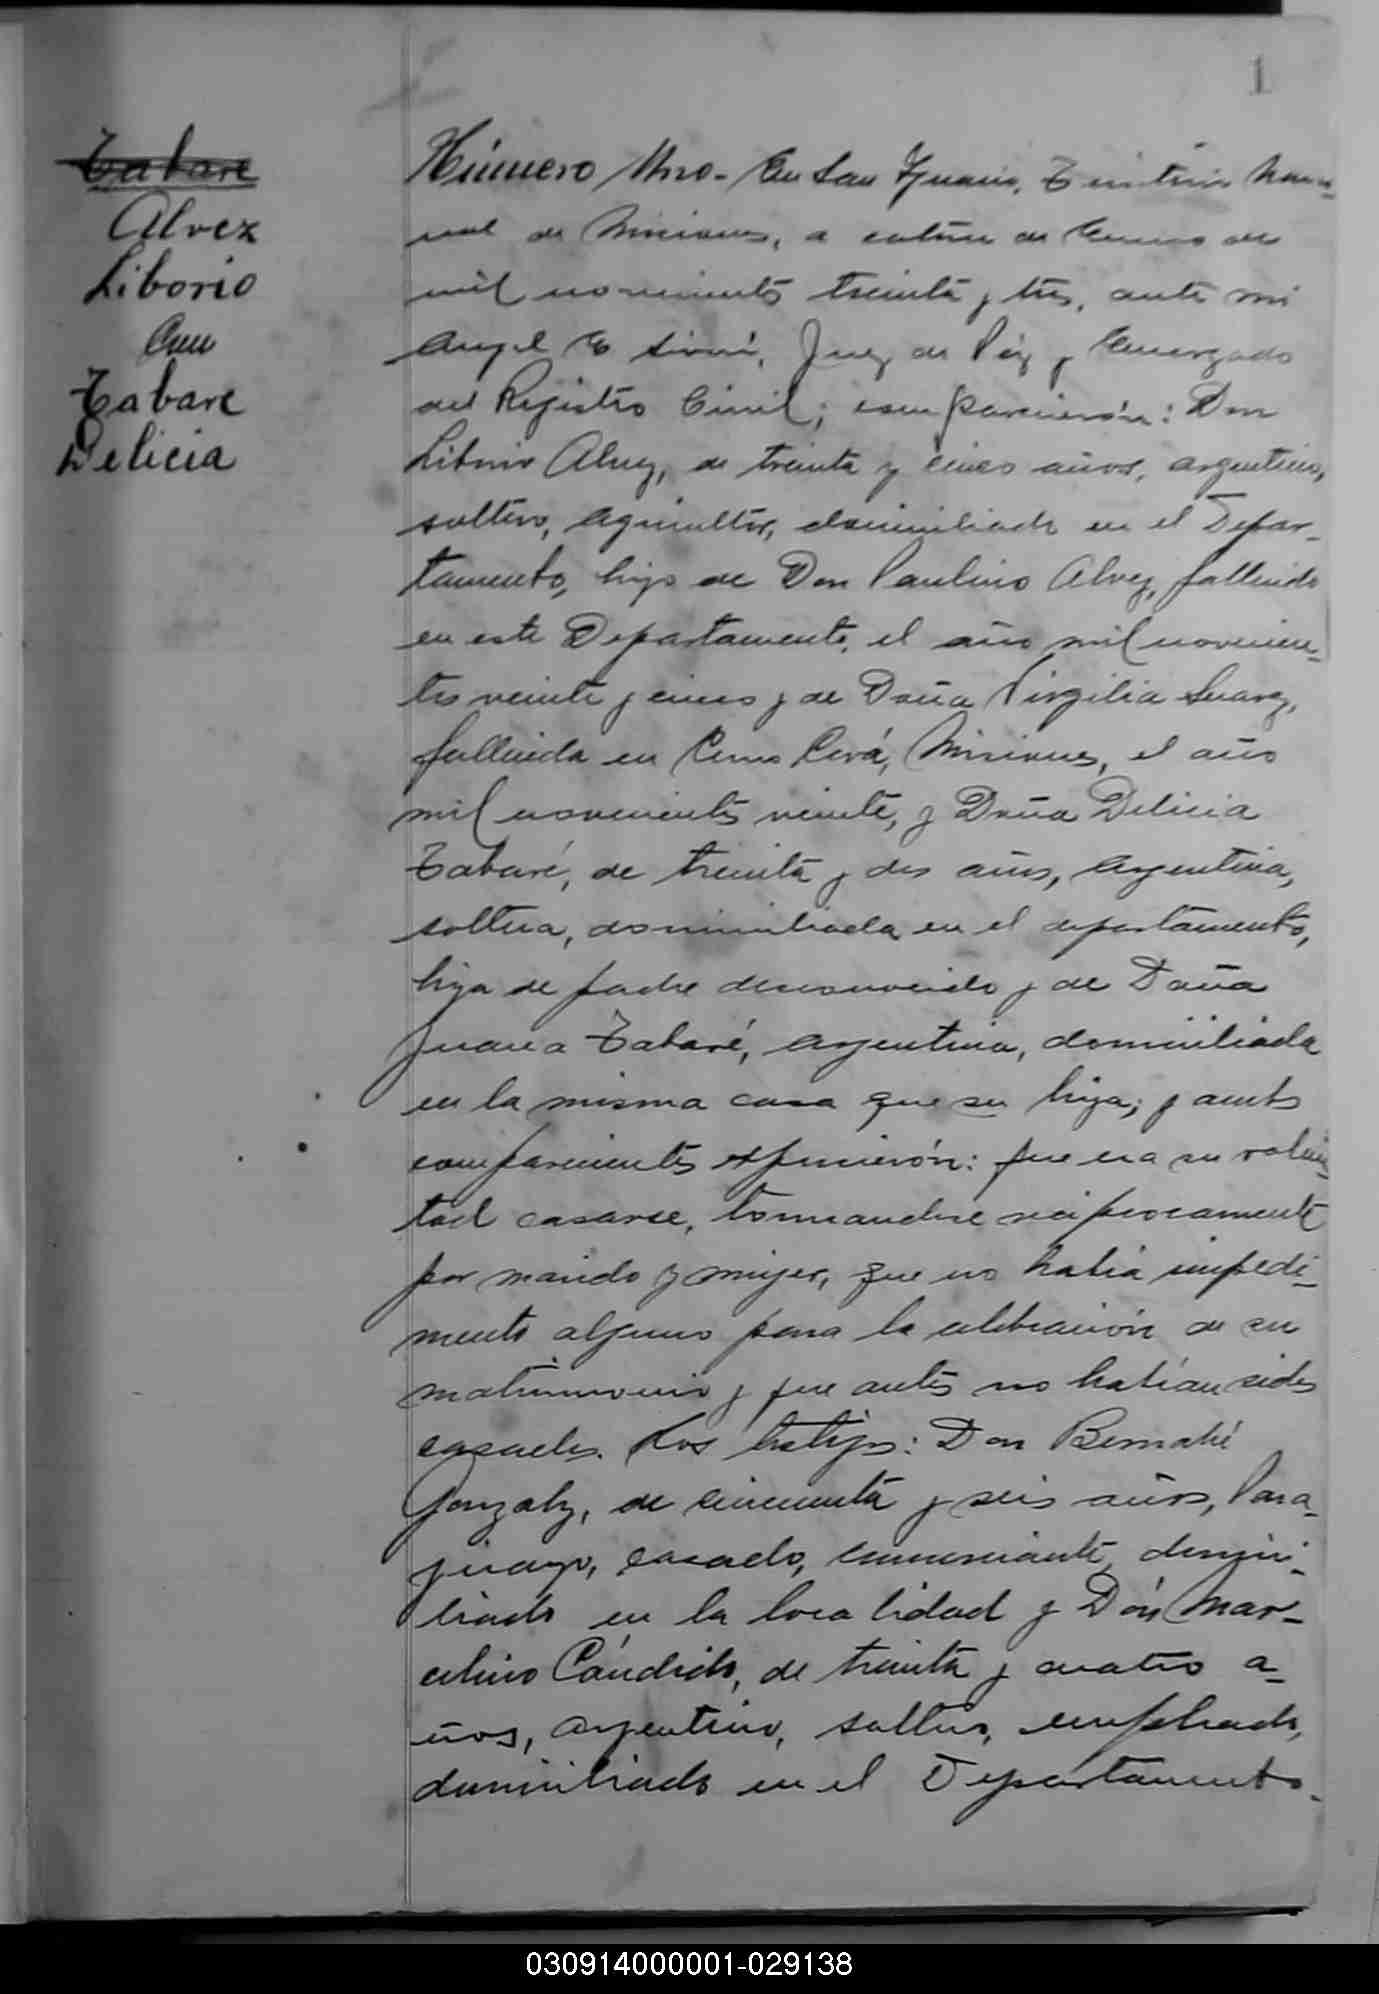 1
Tabare
Alvez
Liborio
Con
Tabare
Delicia
Número Uno - En San Ignacio, Territorio Nacio-
nal de Misiones, a catorce de Enero de
mil novecientos treinta y tres, ante mi
Angel E Sirni, Juez de Paz y Encargado
del Registro Civil; comparecieron: Don
Liborio Alvez, de treinta y cinco años, argentino,
soltero, agricultor, domiciliado en el Depar-
tamento, hijo de Don Paulino Alvez, fallecido
en este Departamento, el año mil novecien-
tos veinte y cinco y de Doña Virgilia Suarez,
fallecida en Cerro Corá, Misiones, el año
mil novecientos veinte, y Doña Delicia
Tabaré, de treinta y dos años, argentina,
soltera, domiciliada en el departamento,
hija de padre desconocido y de Doña
Juana Tabaré, argentina, domiciliada
en la misma casa que su hija; y ambos
comparecientes expusierón: que era su volun-
tad casarse, tomandose recíprocamente
por marido y mujer, que no había impedi-
mento alguno para la celebración de su
matrimonio y que antes no habían sidos
casados. Los testigos: Don Bernabé
Gonzalez, de cincuenta y seis años, Para-
guayo, casado, comerciante, domici-
liado en la localidad y Dón Mar-
celino Cándido, de treinta y cuatro a-
ños, argentino, soltero, empleado,
domiciliado en el Departamento.
030914000001-029138